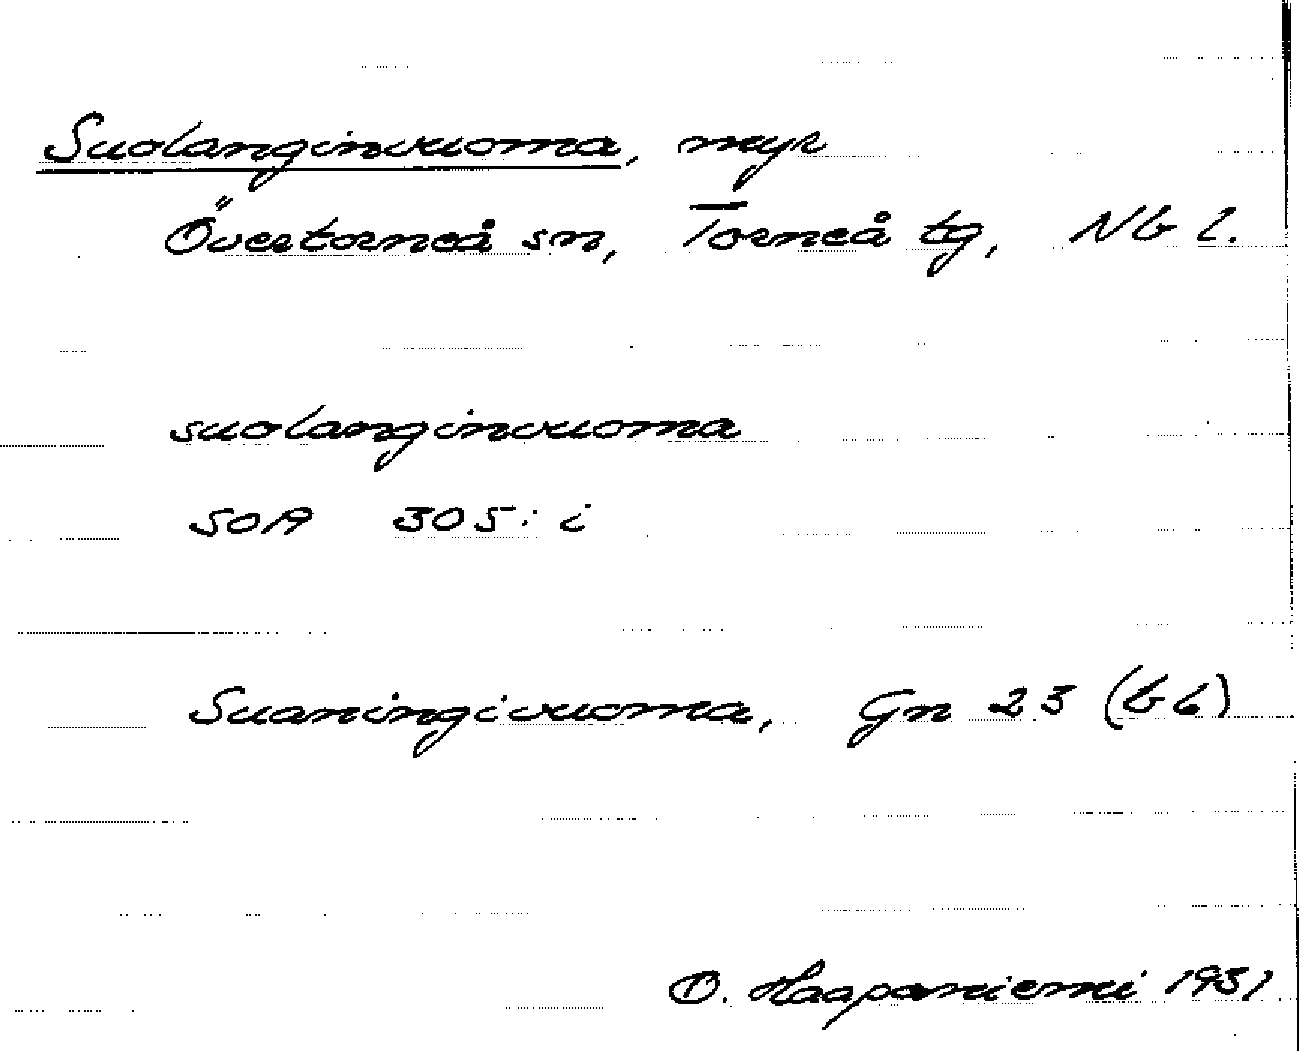 Suolanginvuoma, myr
Övertorneå sn, Torneå tg, Nb l.
suolanginvuoma
SOA 305: i
Suaningivuoma, Gn 23 (b6)
O. Haapaniemi 1931